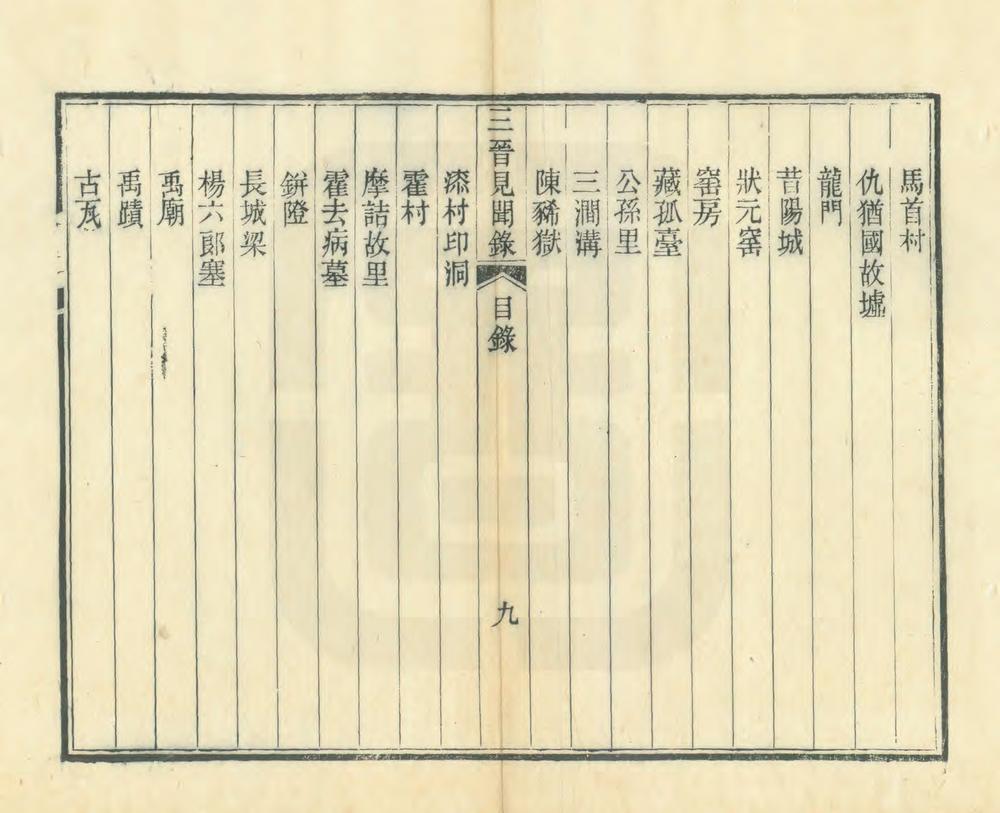 馬首村
仇猶國故墟
龍門
昔陽城
狀元窰
窰房
藏孤臺
公孫里
三澗溝
陳豨獄
三晉見聞錄 目錄 九
漆村印洞
霍村
摩詰故里
霍去病墓
鉼隥
長城梁
楊六郎塞
禹廟
禹蹟
古瓦